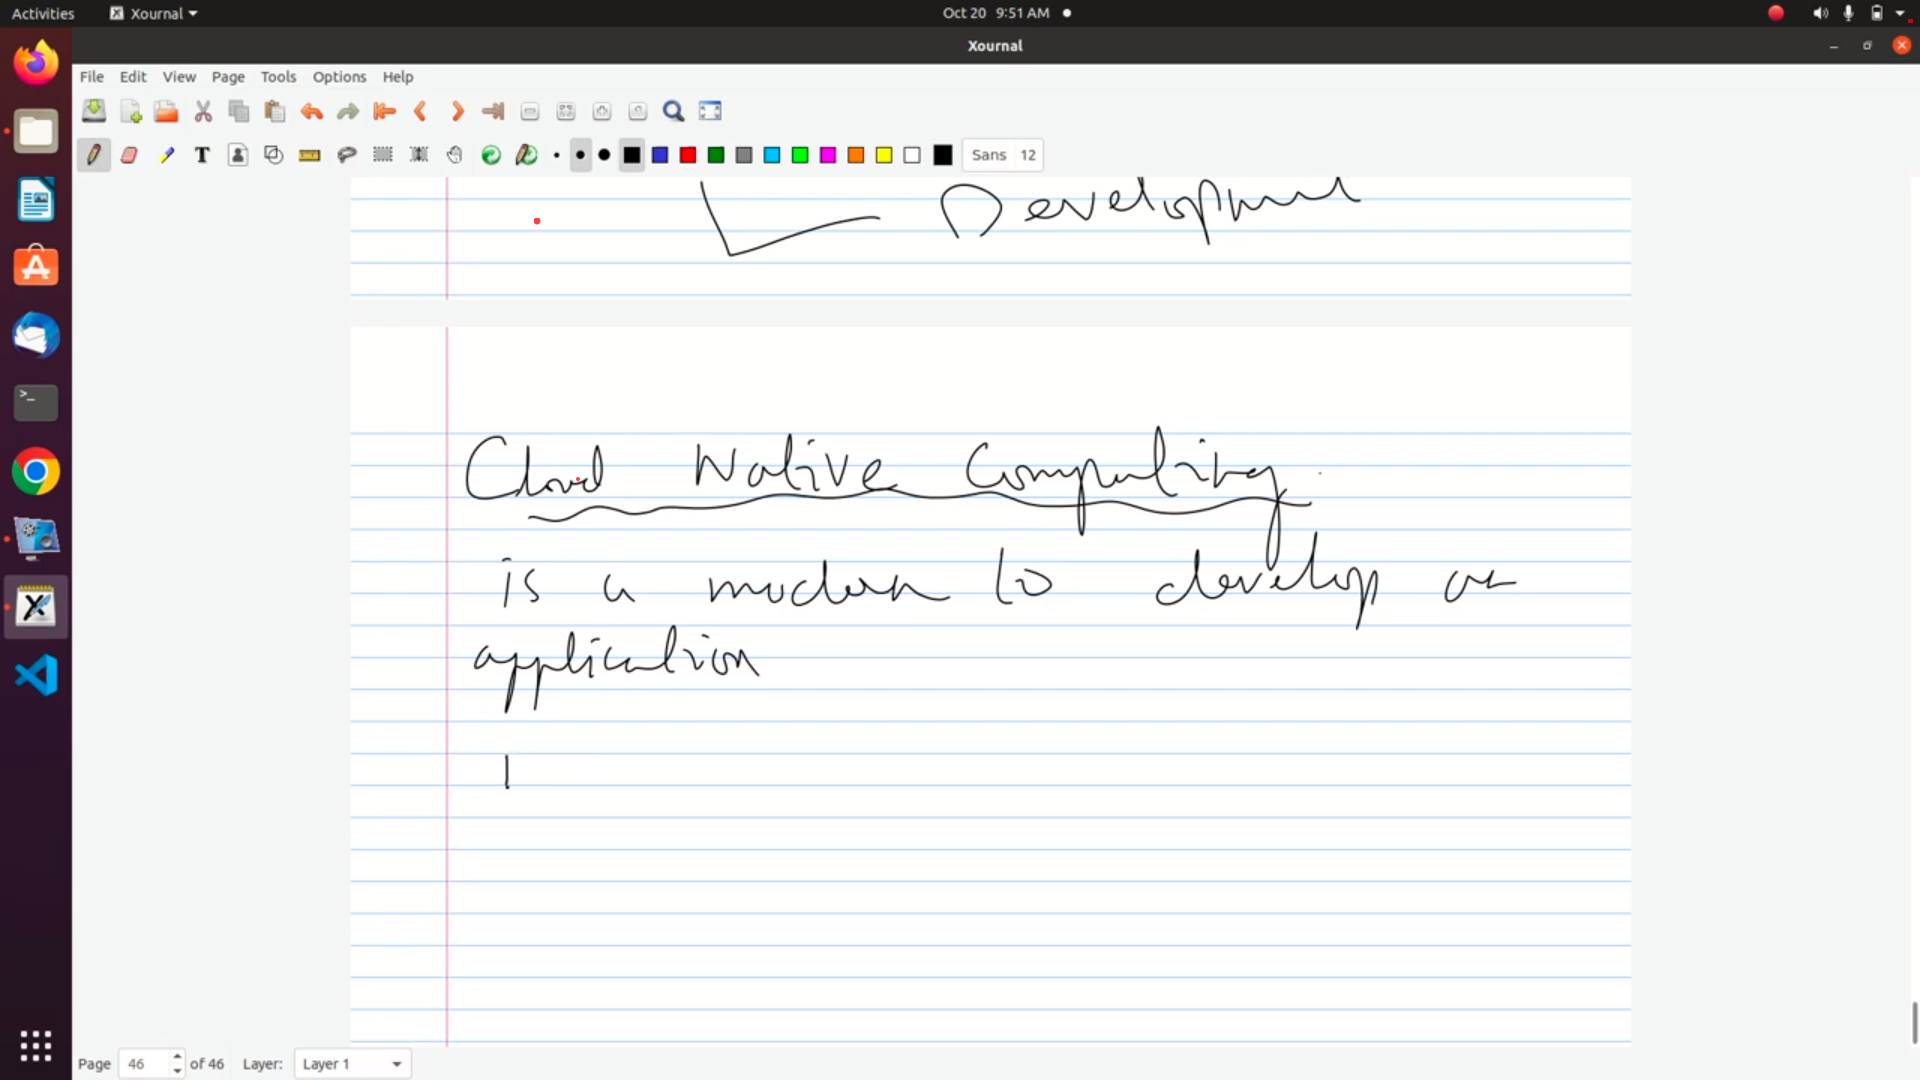 Activities Xournal Oct 20 9:51 AM
Xournal
File Edit View Page Tools Options Help
T Sans 12
Development
Cloud Native Computing
is a modern to develop an
application
Page 46 of 46 Layer: Layer 1